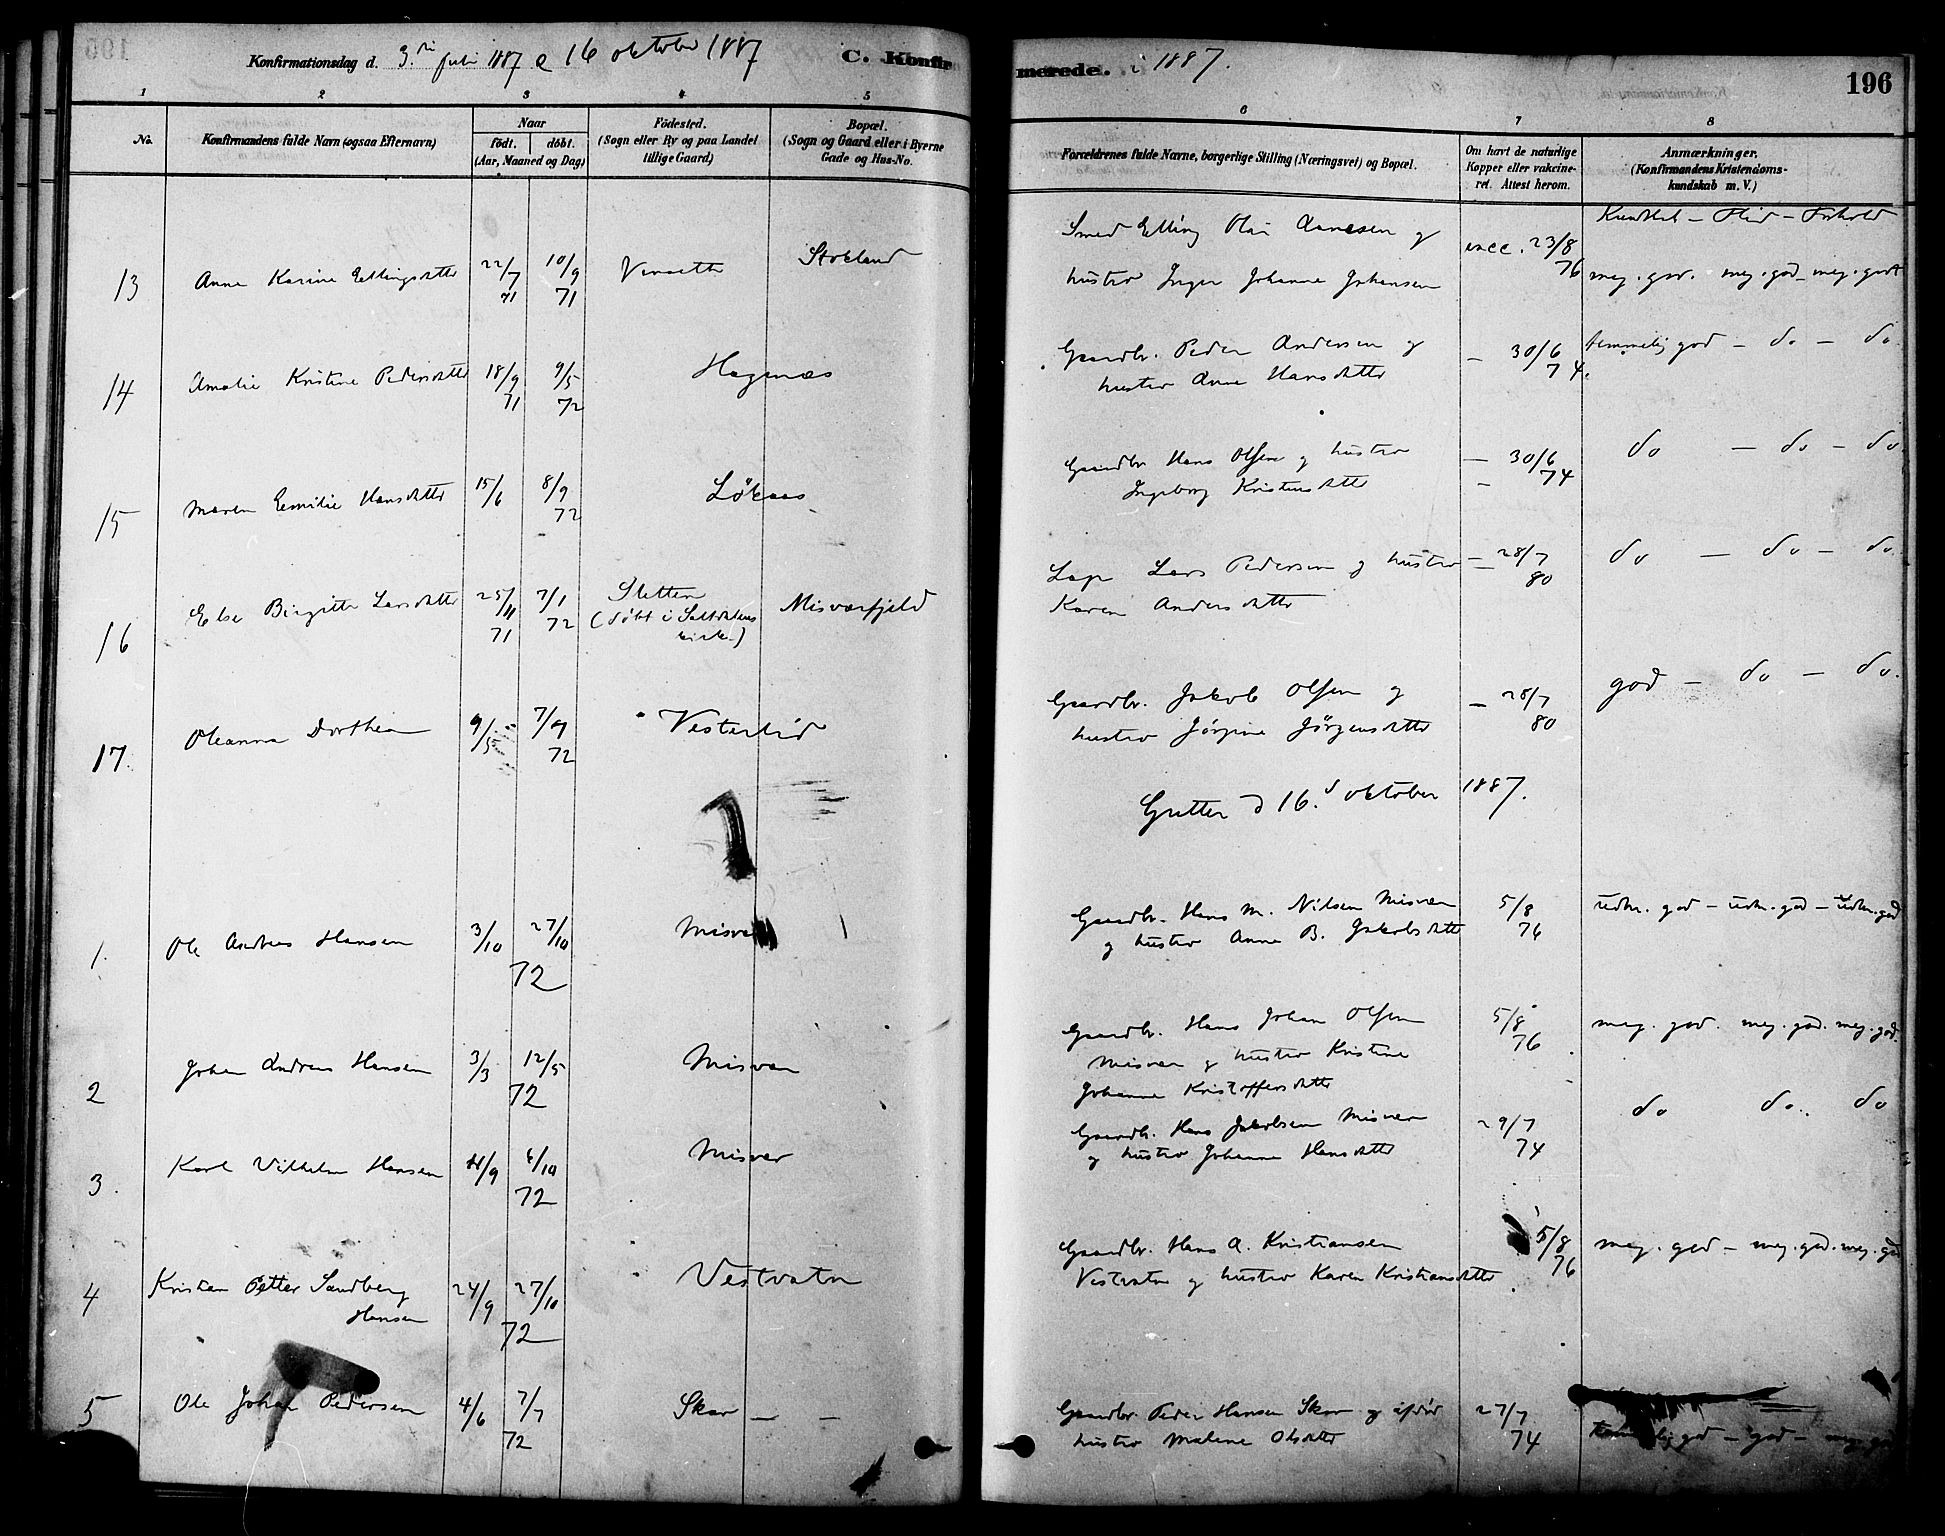 Konfirmationsdag d. 3.die juli 1887 & 16 oktober 1887 C. Konfirmerede. i 1887. 196
1 2 3 4 5 6 7 8
No. Konfirmandens fulde Navn (ogsaa Efternavn) Naar födt. döbt. (Aar, Maaned og Dag) Födested. (Sogn eller By og paa Landet tillige Gaard) Bopæl. (Sogn og Gaard eller i Byerne Gade og Hus-No. Forældrenes fulde Navne, borgerlige Stilling (Næringsvei) og Bopæl. Om havt de naturlige Kopper eller vakcineret. Attest herom. Anmærkninger. (Konfirmandens Kristendomskundskab m. V.)
Kundskab - Flid - Forhold
13 Anne Karine Ellingsdatter 22/7 71 10/9 71 Stokland
Smed Elling Olai og
hustro Inger Johanne Johansen vacc. 23/8 76 meg. god. meg. god - meg. godt
14 Amalie Kristine Pedersdatter 18/9 71 9/5 72 Hagenæs
Gaardbr. Peder Andersen og
hustro Anne Hansdatter - 30/6 74. temmelig god - do - do.
15 Maren Emilie Hansdatter 15/6 8/9 72 Løkaas
Gaardbr Hans Olsen og hustro
Ingeborg Kristensdatter - 30/6 74 do - do - do
16 Else Birgitte Larsdatter 25/11 71 7/1 72 Sletten
(døbt i Saltdalens
kirke) Misværfjeld
Lap Lars Pedersen og hustro
Karen Andersdatter - 28/7 80 do - do - do.
17. Oleanna Dorthea 9/5 7/9 72 Vesterlid
Gaardbr. Jakob Olsen og
hustro Jørgine Jørgensdatter - 28/7 80 god - do - do.
Gutter d 16. oktober 1887.
1. Ole Andreas Hansen 3/10 27/10 72 Misvær
Gaardbr. Hans M. Nilsen Misvær
og hustro Anne B. Jakobsdatter 5/8 76 udm. god - udm. god - udm. god
2 Johan Andreas Hansen 3/3 12/5 72 Misvær
Gaardbr. Hans Johan Olsen
Misvær og hustro Kristine
Johanne Kristoffersdatter 5/8 76 meg. god. meg. god. meg. god.
3. Karl Vilhelm Hansen 4/9 6/10 72 Misvær
Gaardbr. Hans Jakobsen Misvær
og hustro Johanne Hansdatter 29/7 74 do do. do
4 Kristian Petter Sandberg
Hansen 24/9 27/10 72 Vestvatn
Gaardbr. Hans A. Kristiansen
Vestvatn og hustro Karen Kristiansdatter 5/8 76 meg. god - meg. god. meg. god
5 Ole Johan Pedersen 4/6 7/7 72 Skar - -
Gaardbr. Peder Hansen Skar og afdød
hustro Malene Olsdatter 27/7 74 temmelig god - god - meg. god